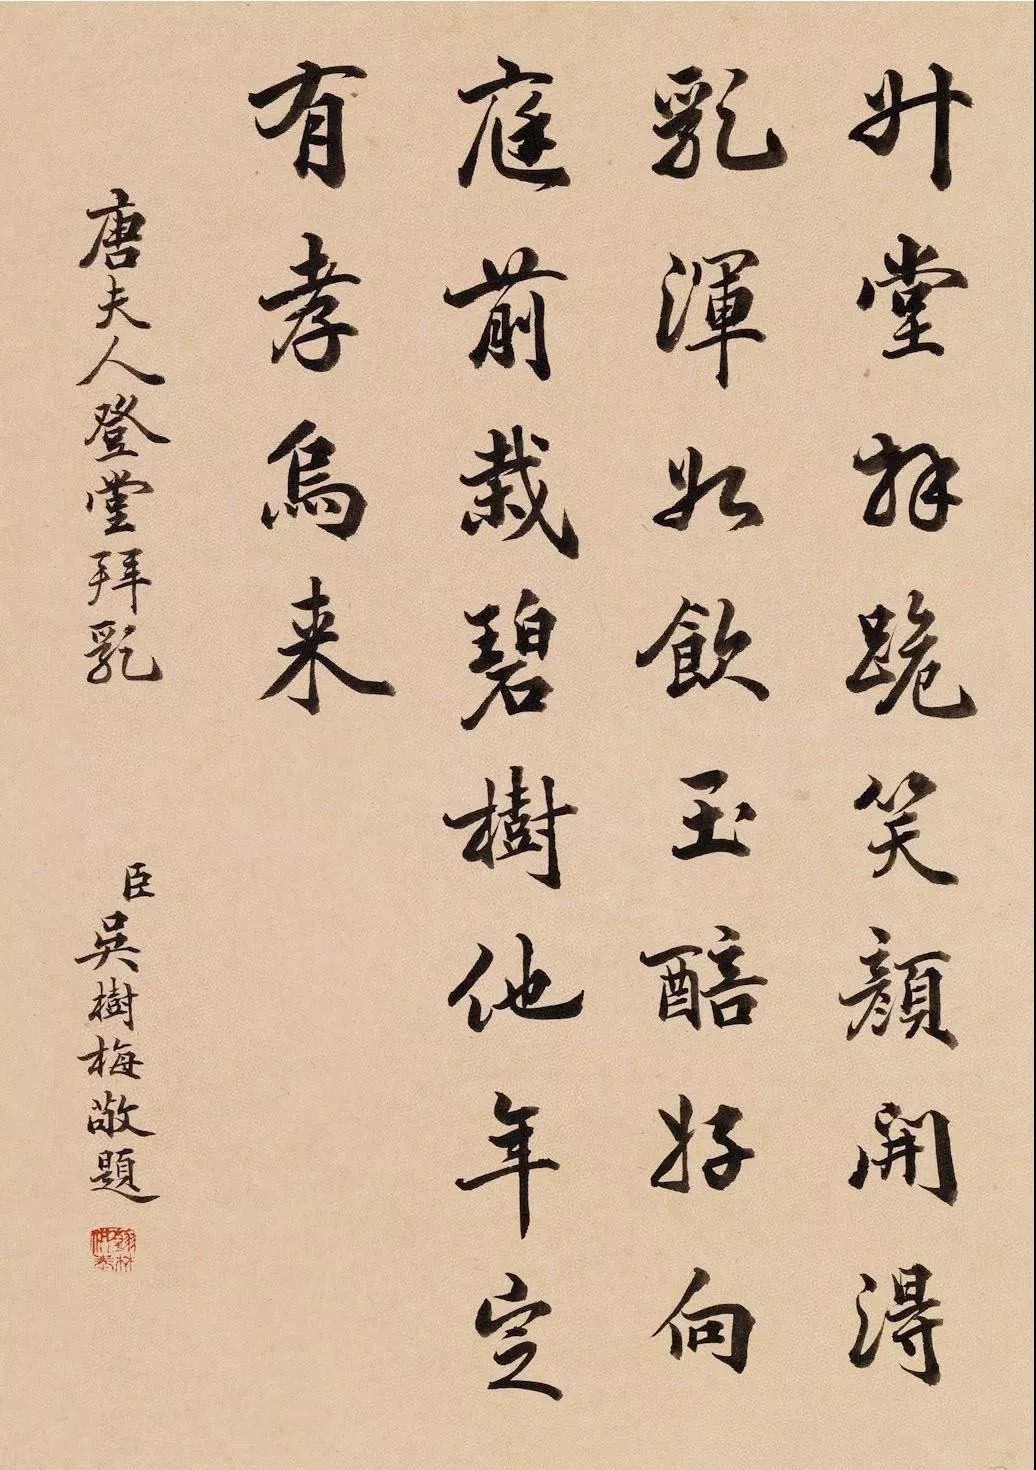 升堂拜跪笑顔開得
乳渾如飲玉醅好向
庭前栽碧樹他年定
有孝烏来
唐夫人登堂拜乳
臣吳樹梅敬題
翰林供奉